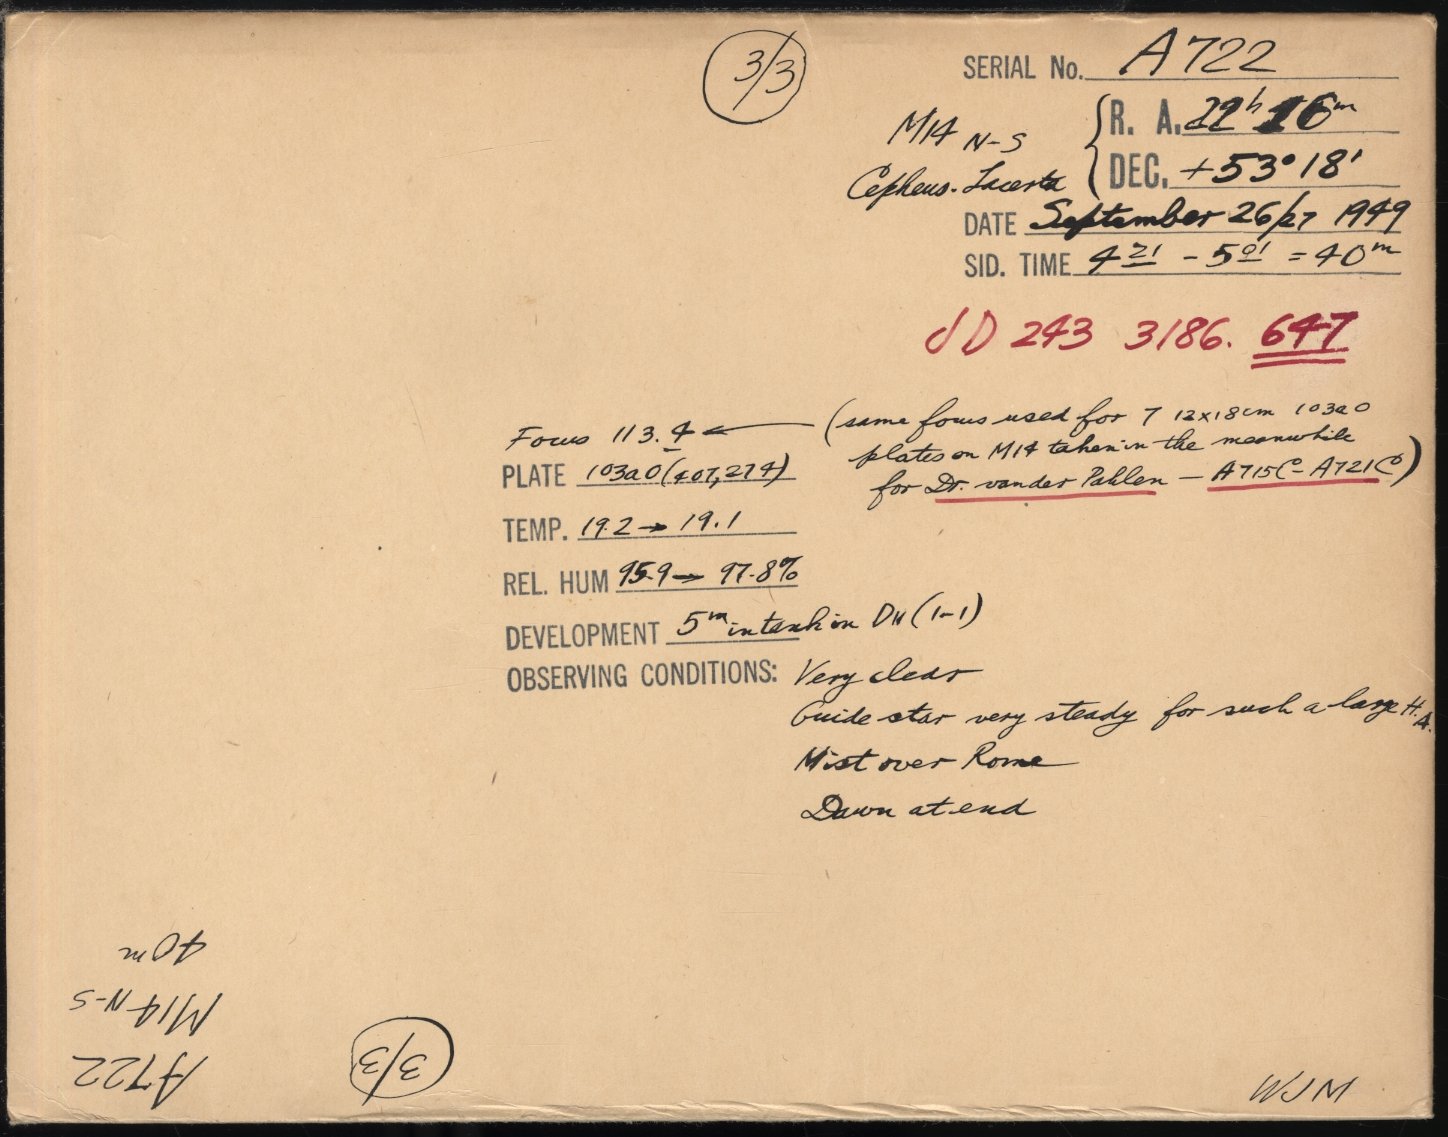 3/3
SERIAL No. A722
M14 N-S
Cepheus-Lacerta
R. A. 22h 16m
DEC. +53° 18'
DATE September 26/27 1949
SID. TIME 4 21 - 5 01 = 40m
JD 243 3186. 647
Focus 113.4 ← (same focus used for 7 12x18cm 103aO
plates on M14 taken in the meanwhile
for Dr. vander Pahlen — A715C - A721C)
PLATE 103aO (407,274)
TEMP. 19.2 → 19.1
REL. HUM 95.9 → 97.8%
DEVELOPMENT 5m in tank in D11 (1-1)
OBSERVING CONDITIONS: Very clear
Guide star very steady for such a large H.A.
Mist over Rome
Dawn at end
A722
M14 N-S
40m
3/3
WJM